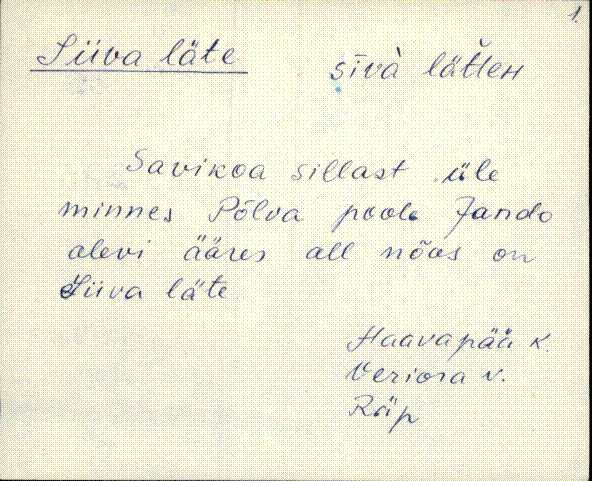 1.
Siiva läte sīvà lätʼteн
Savikoa sillast üle
minnes Põlva poole Jando
alevi ääres all nõos on
Siiva läte
Haavapää k.
Veriora v.
Räp